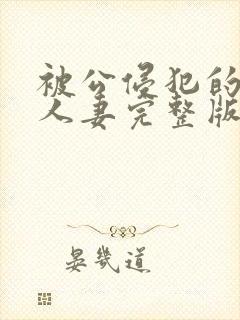 被公侵犯的
人妻完整版
晏幾道